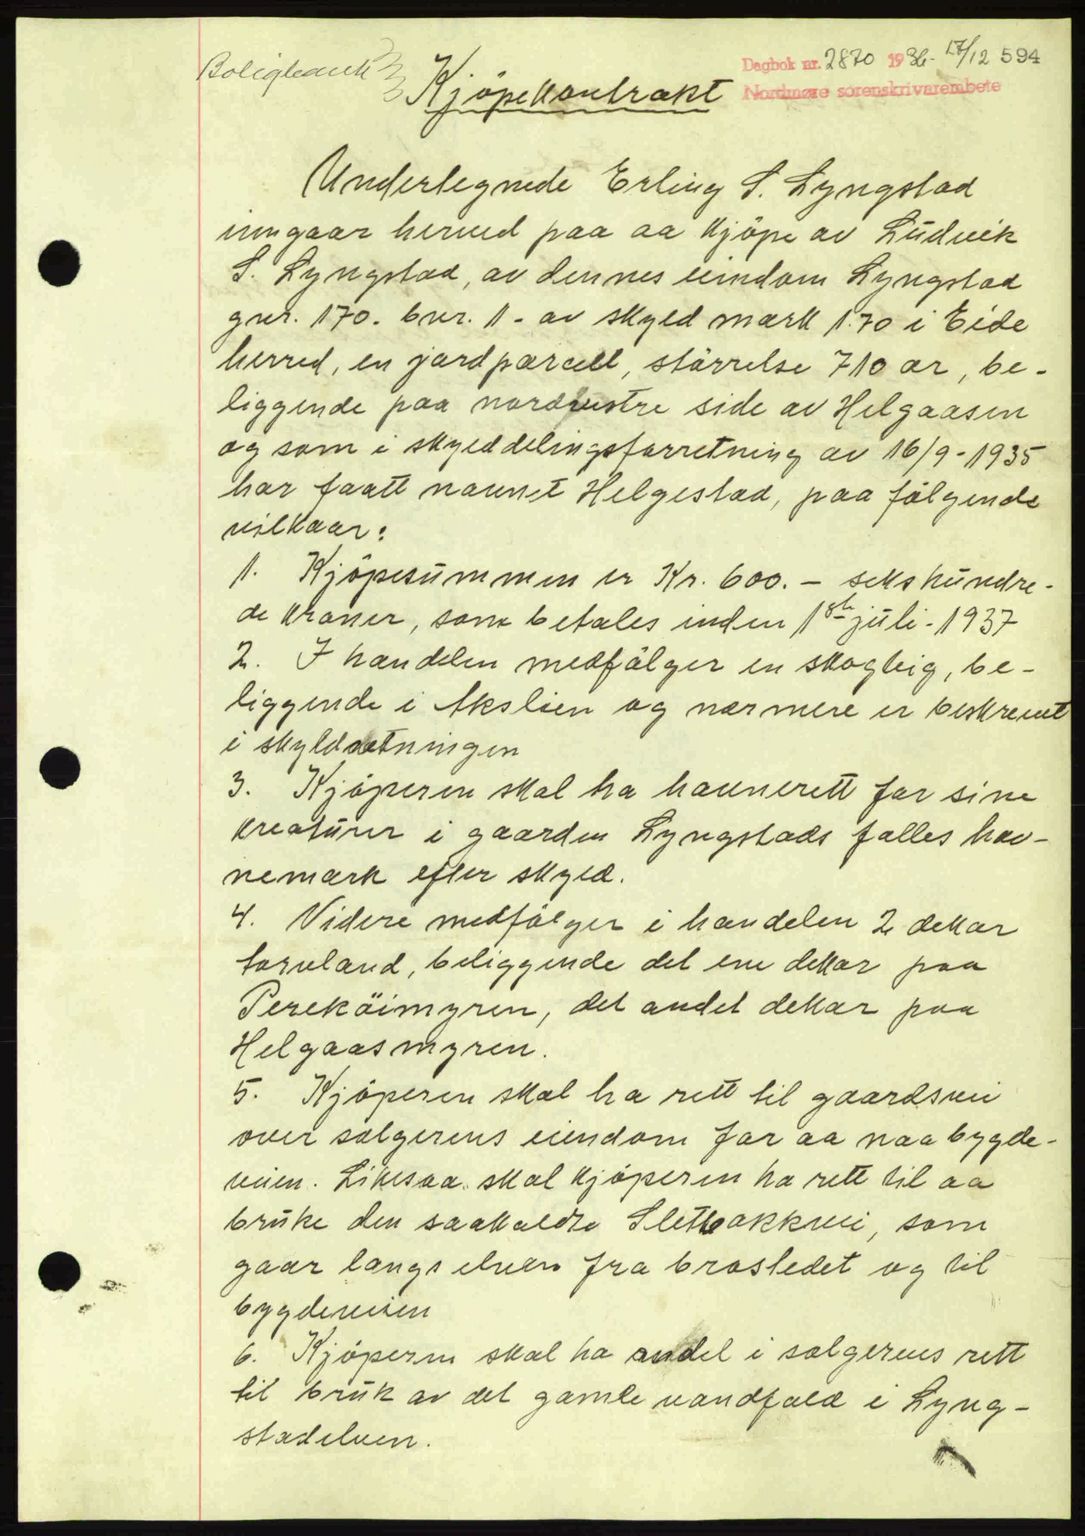 Boligbank
Dagbok nr. 2870 1936 - 17/12 594
Nordmøre sorenskriverembete
Kjöpekontrakt
Undertegnede Erling S. Lyngstad
inngaar herved paa aa kjöpe av Ludvik
S. Lyngstad, av dennes eiendom Lyngstad
gnr. 170. bnr. 1 - av skyld mark 1.70 i Eide
herred, en jordparcell, störrelse 710 ar, be-
liggende paa nordvestre side av Helgaasen
og som i skylddelingsforretning av 16/9 - 1935
har faatt navnet Helgestad, paa fölgende
vilkaar:
1. Kjöpesummen er Kr. 600. – sekshundre-
de kroner, som betales inden 1ste juli - 1937
2. I handelen medfölger en skogteig, be-
liggende i Akslien og nærmere er beskrevet
i skyldsetningen
3. Kjöperen skal ha havnerett for sine
kreaturer i gaarden Lyngstads felles hav-
nemark efter skyld.
4. Videre medfölger i handelen 2 dekar
torvland, beliggende det ene dekar paa
Pereköimyren, det andet dekar paa
Helgaasmyren.
5. Kjöperen skal ha rett til gaardsvei
over selgerens eiendom for aa naa bygde-
veien. Likesaa skal kjöperen ha rett til aa
bruke den saakaldte Sletbakkvei, som
gaar langs elven fra brostedet og til
bygdeveien
6. Kjöperen skal ha andel i selgerens rett
til bruk av det gamle vandfald i Lyng-
stadelven.